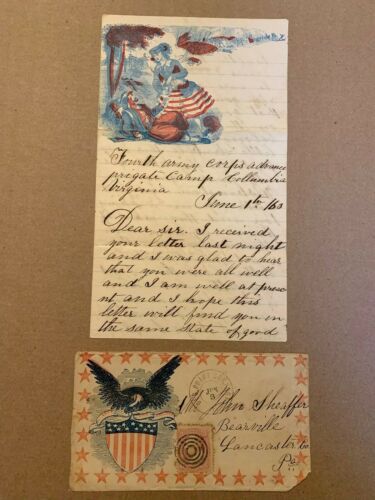 Fourth army corps advance
pregate Camp Collumbia
Virginia
June 1th 186
Dear sir. I received
your letter last night
and I was glad to hear
that you were all well
and I am well at presc
nt and I hope this
letter will find you in
the same State of good
JUN
3
Mr John Sheaffer
Bearville
Lancaster Co
Pa